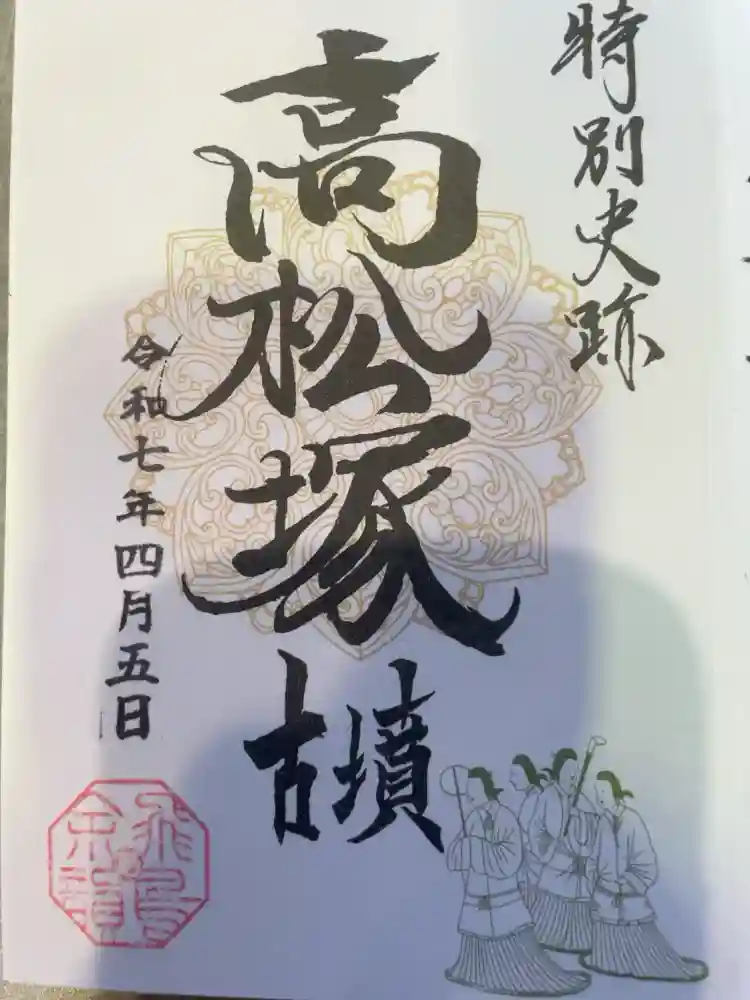 特別史跡
高松塚
古墳
令和七年四月五日
飛鳥
余韻